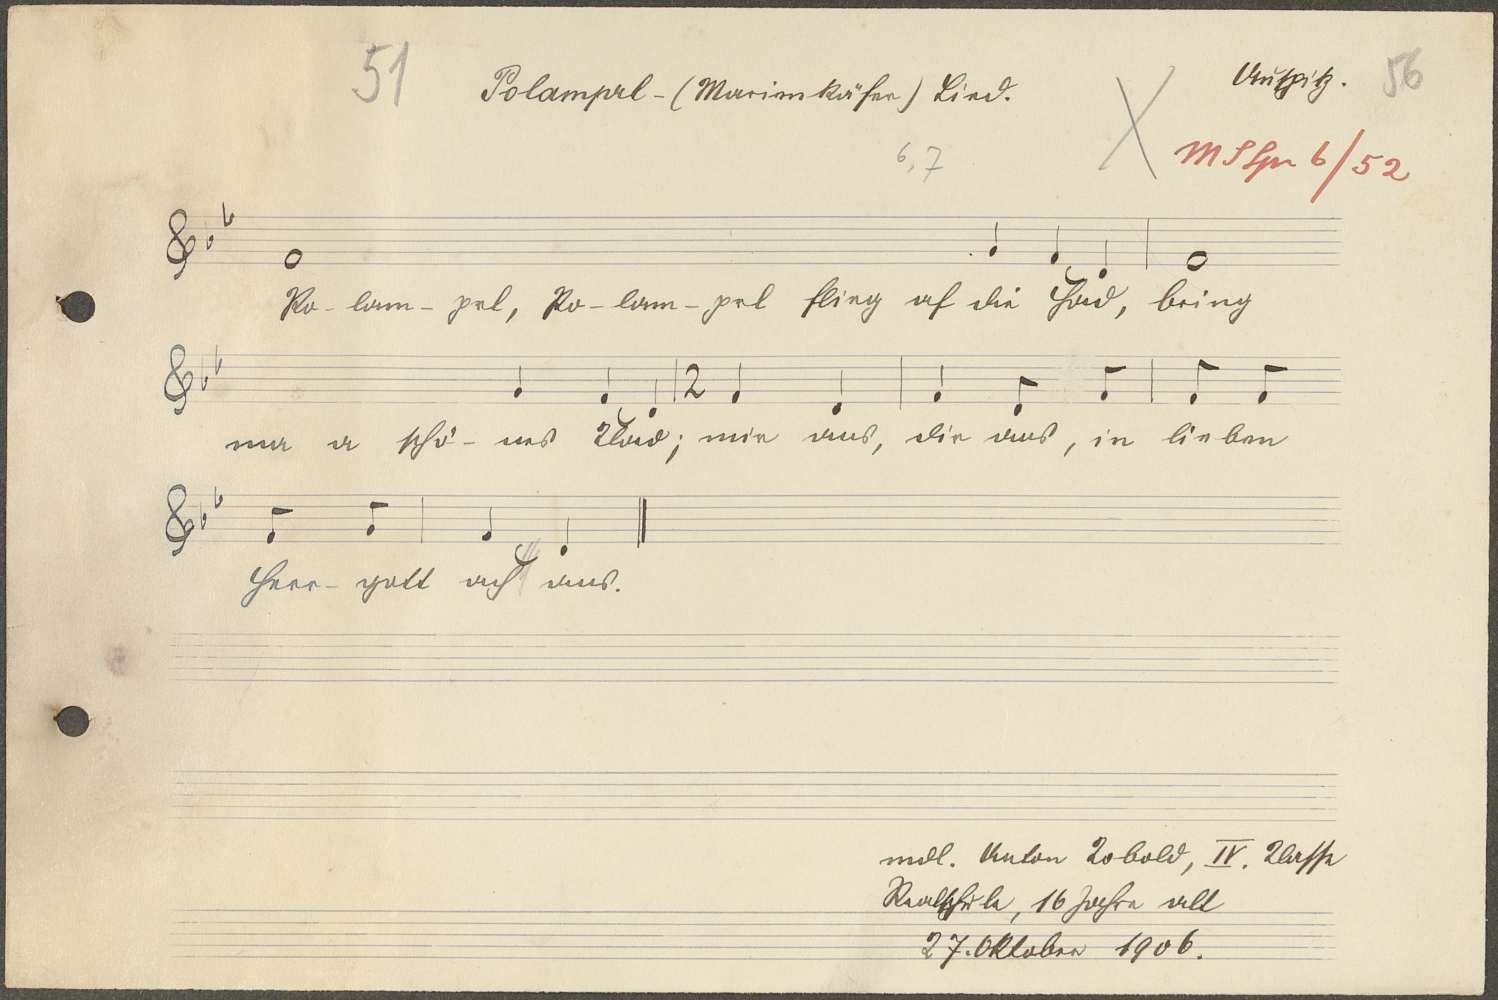 51
Polampel-(Marienkäfer) Lied.
Auspitz.
56
6,7
6/52
Po-lam-pel, Po-lam-pel flieg af die Had, bring
ma a schö-nes Klad; 2 mir aus, dir aus, in lieben
Herr-gott ach aus.
mdl. Anton Kobold, IV. Klasse
Realschule, 16 Jahre alt
27. Oktober 1906.